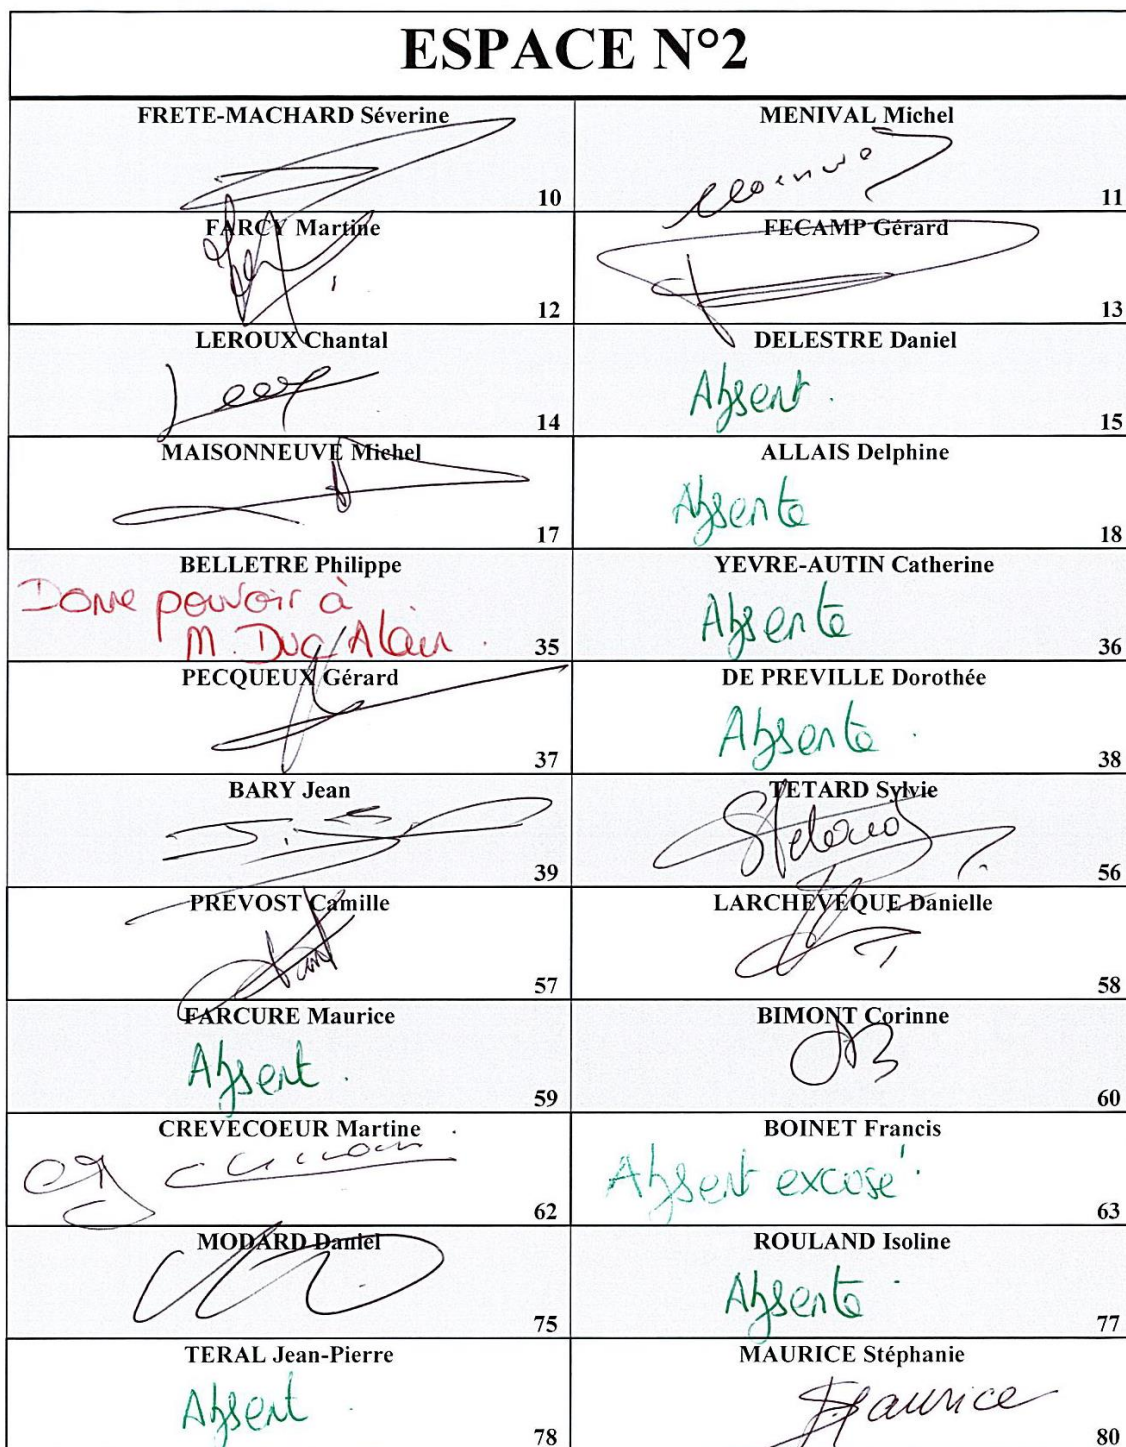 ESPACE N°2
FRETE-MACHARD Séverine
10
MENIVAL Michel
11
FARCY Martine
12
FECAMP Gérard
13
LEROUX Chantal
14
DELESTRE Daniel
Absent.
15
MAISONNEUVE Michel
17
ALLAIS Delphine
Absente
18
BELLETRE Philippe
Donne pouvoir à
M. Duc Alain.
35
YEVRE-AUTIN Catherine
Absente
36
PECQUEUX Gérard
37
DE PREVILLE Dorothée
Absente.
38
BARY Jean
39
TETARD Sylvie
56
PREVOST Camille
57
LARCHEVEQUE Danielle
58
FARCURE Maurice
Absent.
59
BIMONT Corinne
60
CREVECOEUR Martine
62
BOINET Francis
Absent excusé.
63
MODARD Daniel
75
ROULAND Isoline
Absente.
77
TERAL Jean-Pierre
Absent
78
MAURICE Stéphanie
Maurice
80